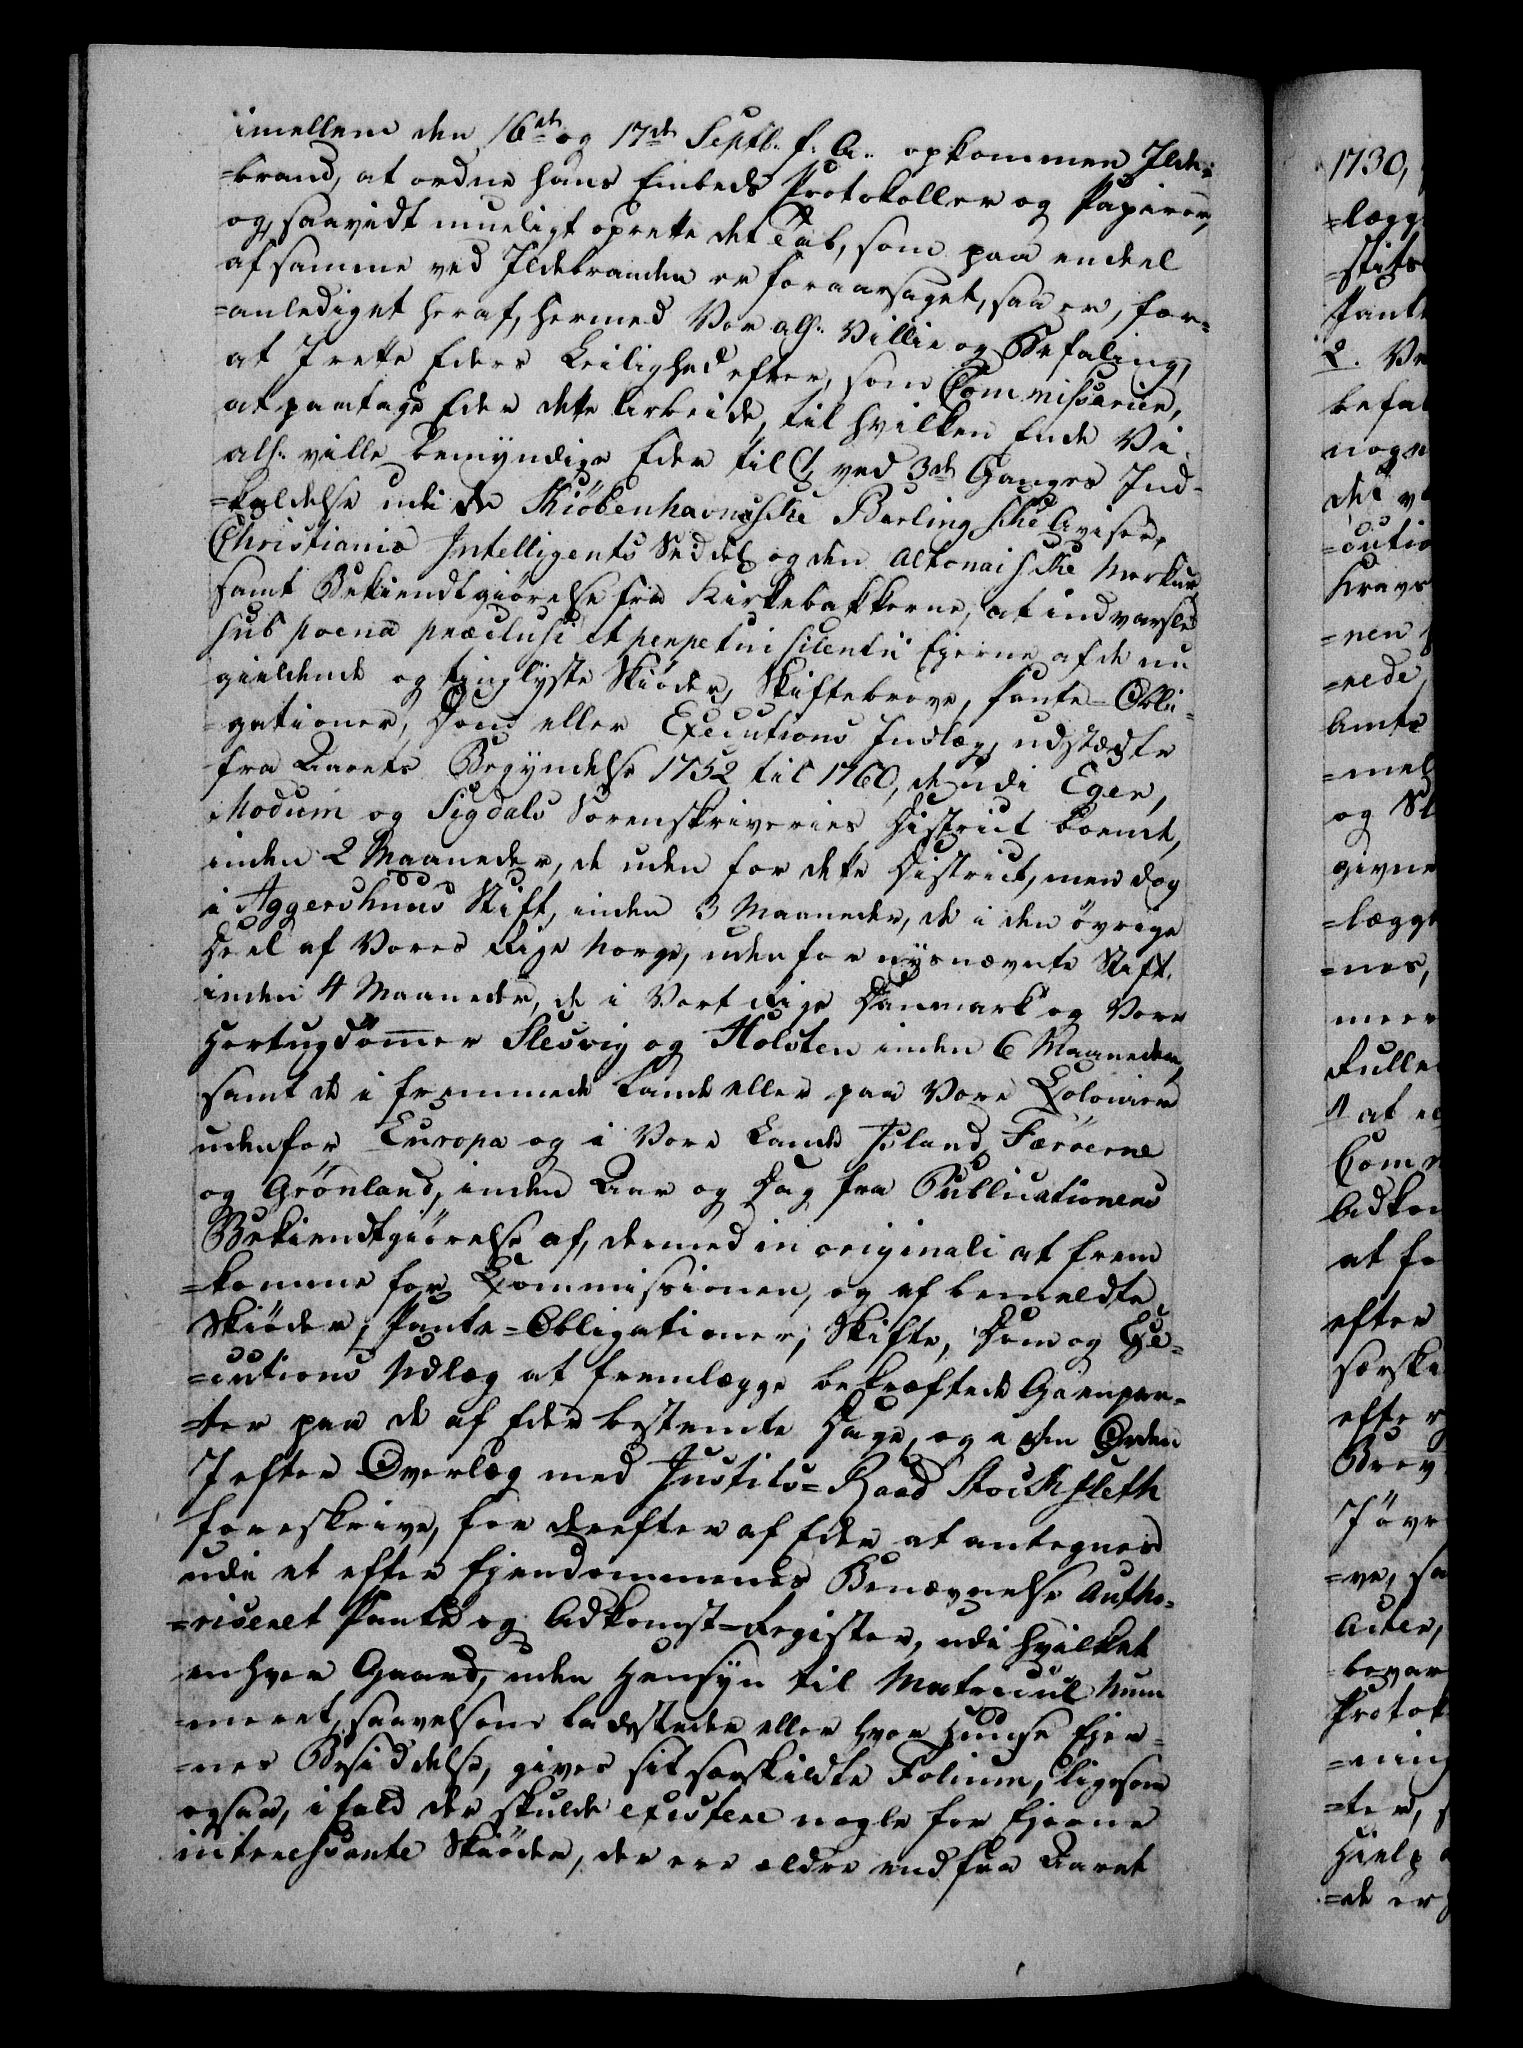 imellem den 16de og 17de Septb: f: A: opkommen Ilde-
=brand, at ordne hans Embeds Protokoller og Papirer,
og, saavidt mueligt oprette det Tab, som paa endeel
af samme ved Ildebranden er foraarsaget, saa er, for-
=anlediget heraf, hermed Vor alh: Villie og Befaling,
at I rette Eders Leilighed efter, som Commissarier,
at paatage Eder dette Arbeide, til hvilken Ende Vi
alh: ville bemyndige Eder til, ved 3de Ganges Ind-
=kaldelse udi de Kiöbenhavnsche Berlingsche Aviser,
Christiania Intelligents Seddel og den Altonaische Merkur
samt Bekiendtgiørelse fra Kirkebakkerne, at indvarsle
sub poena præclusi et perpetui silentii Ejerne af de nu
gieldende og tinglyste Skiöder, Skiftebreve, Pante-Obli-
=gationer, Dom eller Executions Indlæg, udstædte
fra Aarets Begyndelse 1752 til 1760, de udi Eger,
Modum og Sigdals Sorenskriveries District boende,
inden 2 Maaneder, de uden for dette District, men dog
i Aggershuus Stift, inden 3 Maaneder, de i den övrige
Deel af Vores Rige Norge, udenfor nysnævnte Stift,
inden 4 Maaneder, de i Vort Rige Danmark og Vore
Hertugdömmer Slesvig og Holsten inden 6 Maaneder,
samt de i fremmede Lande eller paa Vore Colonier
udenfor Europa og i Vore Lande Island, Færöerne
og Grönland, inden Aar og Dag fra Publicationens
Bekiendtgiörelse af, dermed in originali at frem
=komme for Commissionen, og af bemeldte
Skiöder, Pante=Obligationer, Skifte, Dom og Exe-
=cutions Udlæg at fremlægge bekræftede Gienpar-
=ter paa de af Eder bestemte Dage, og i den Orden
I efter Overlæg med Justits=Raad Stockfleth
foreskrive, for derefter af Eder at antegnes
udi et efter Ejendommenes Benævnelse Autho-
=riseret Pante og Adkomst-Register, udi hvilket
enhver Gaard, uden Hensyn til Matricul Num
=meret, saavelsom Ladesteder eller hver Huuse Ejer-
=nes Besiddelse, gives sit særskildte Folium, ligesom
ogsaa, ifald der skulde existere nogle for Ejerne
interessante Skiöder, der ere ældre end fra Aaret
1730,
=lægg
Pante
befal
nogn
Kravs
=nen
=rede,
Amts
=mel
og Sk
givne
=lægge
=nes,
meer
Fulle
at
Com
Adkom
at fo
efter
særski
efter
Brev
I övr
=ve, sa
Acter,
bevar
Protok
=ning
=ter, s
Hielp
=de er